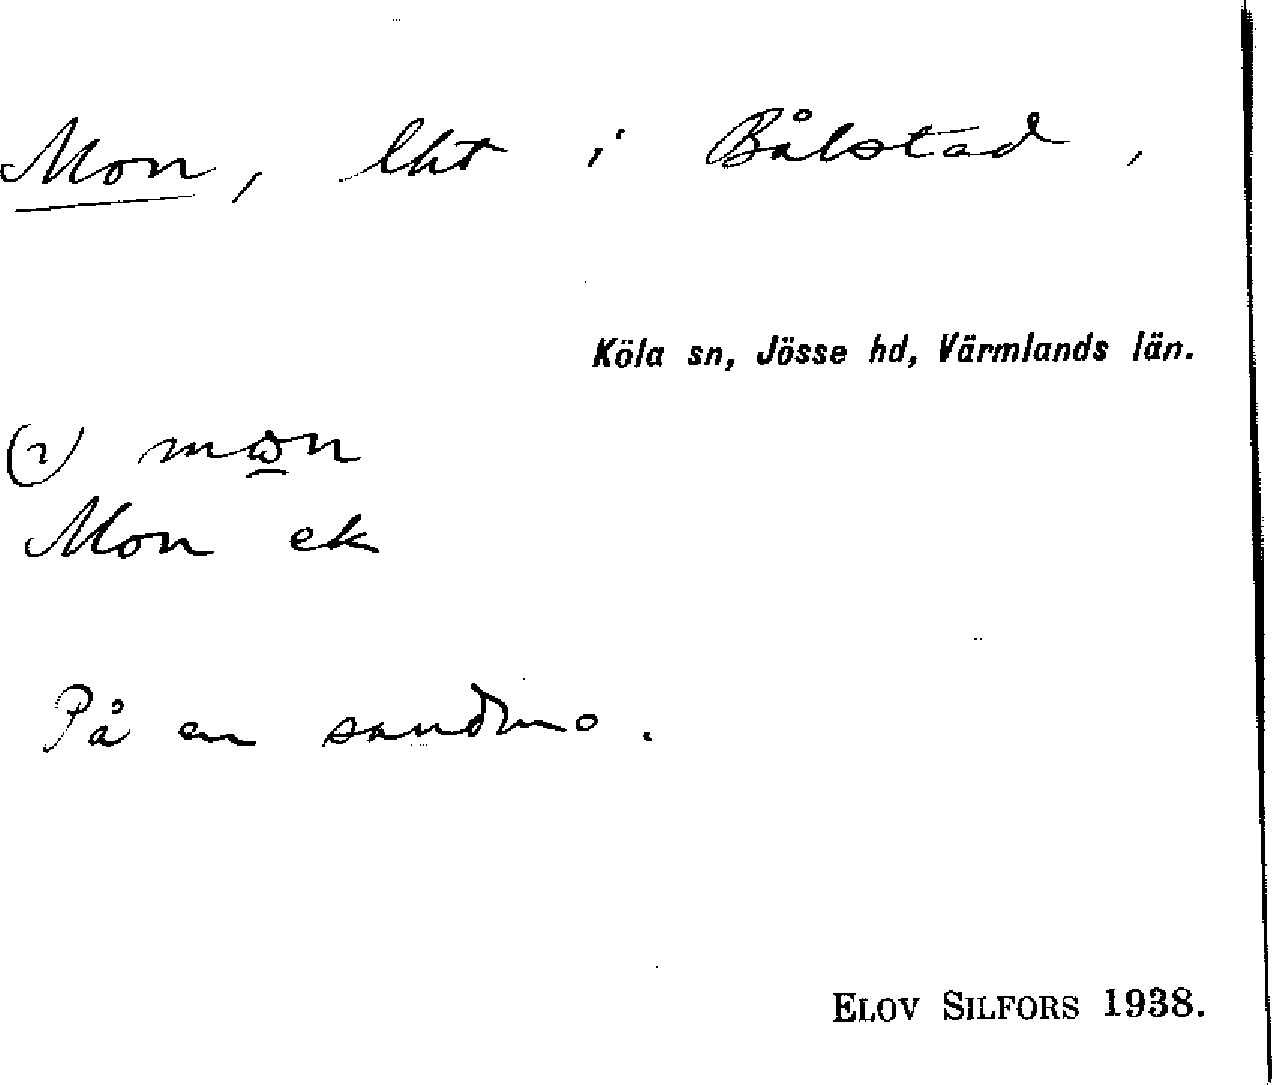 Mon, lht i Bålstad,
Köla sn, Jösse hd, Värmlands län.
Mon ek
På en sandmo.
ELOV SILFORS 1938.